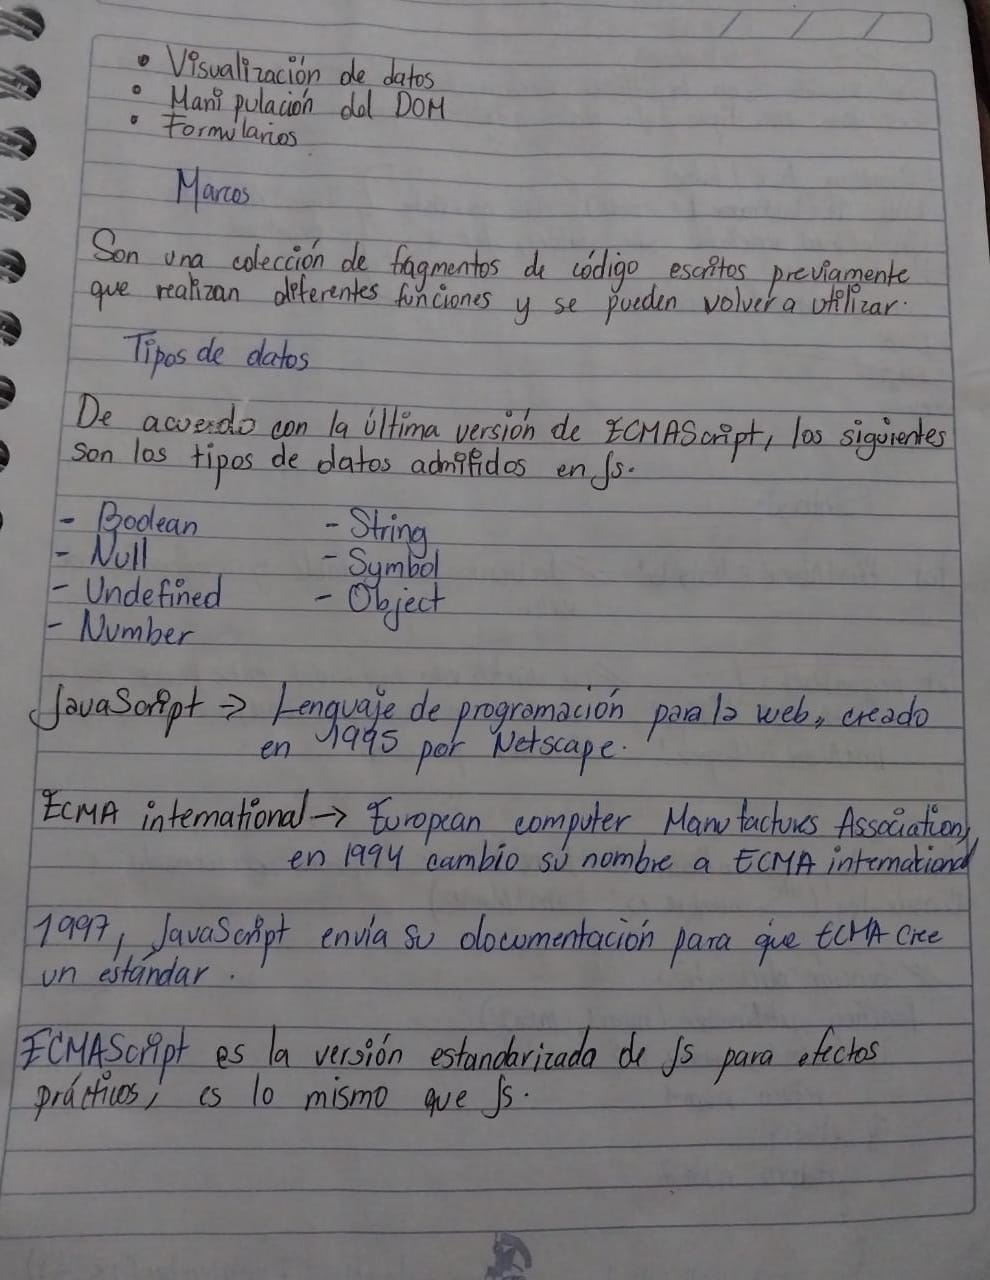 • Visualización de datos
• Manipulación del DOM
• Formularios
Marcos
Son una colección de fragmentos de código escritos previamente
que realizan diferentes funciones y se pueden volver a utilizar.
Tipos de datos
De acuerdo con la última versión de ECMAScript, los siguientes
son los tipos de datos admitidos en Js.
- Boolean - String
- Null - Symbol
- Undefined - Object
- Number
JavaScript → Lenguaje de programación para la web, creado
en 1995 por Netscape.
ECMA international → European computer Manufactures Association,
en 1994 cambio su nombre a ECMA international
1997, JavaScript envía su documentación para que ECMA cree
un estándar.
ECMAScript es la versión estandarizada de Js para efectos
prácticos, es lo mismo que Js.